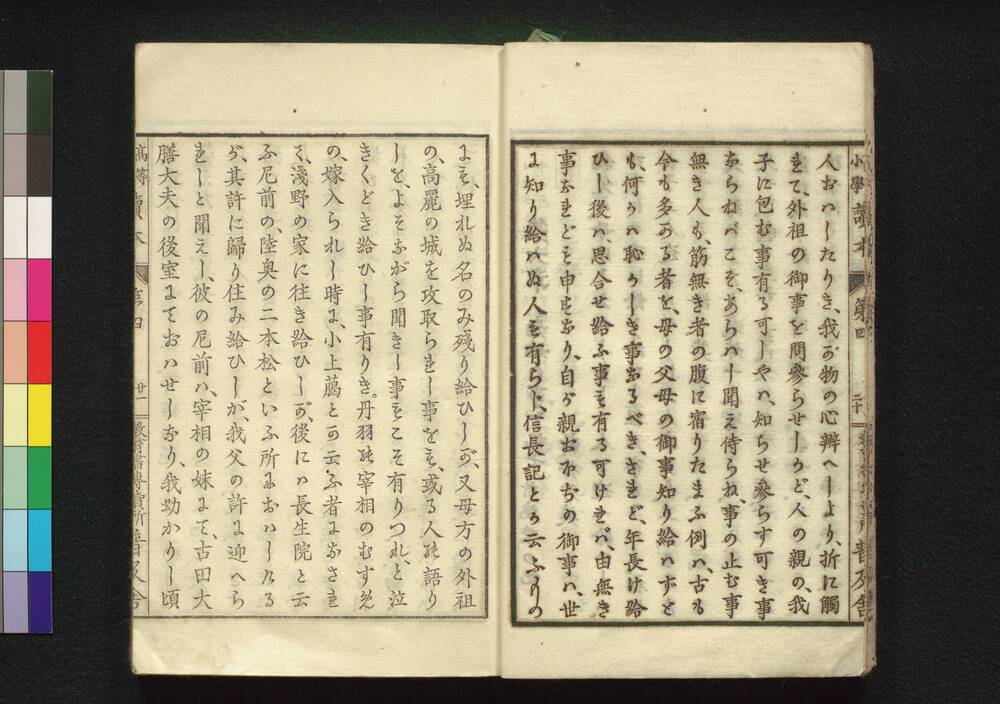 人おハしたりき、我が物の心辨へしより、折に觸
まて、外祖の御事を問參らせしかど、人の親の、我
子に包む事有る可しやハ、知らせ參らす可き事
ならねバこそ、あらハし聞え侍らね、事の止む事
無き人も、筋無き者の腹に宿りたまふ例ハ、古も
今も多かる者を、母の父母の御事知り給ハずと
も、何かハ恥かしき事なるべき、されど、年長け給
ひし後ハ、思合せ給ふ事も有る可けれバ、由無き
事なれども申すなり、自が親おほぢの御事ハ、世
に知り給ハぬ人も有らじ、信長記とか云ふもの
小學讀本
第四
二十
普及舍
にも、埋れぬ名のみ殘り給ひしが、又母方の外祖
の、高麗の城を攻取られし事をも、或る人の語り
しを、よそながら聞きし事もこそ有りつれ、と泣
きくどき給ひし事有りき。丹羽の宰相のむすめ
の、嫁入られし時に、小上﨟とか云ふ者になされ
て、淺野の家に往き給ひしが、後にハ長生院と云
ふ尼前の、陸奥の二本松といふ所におハしける
が、其許に歸り住み給ひしが、我父の許に迎へら
れしと聞えし、彼の尼前ハ、宰相の妹にて、古田大
膳大夫の後室にておハせしなり、我幼かりし頃
高等讀本
第四
廿一